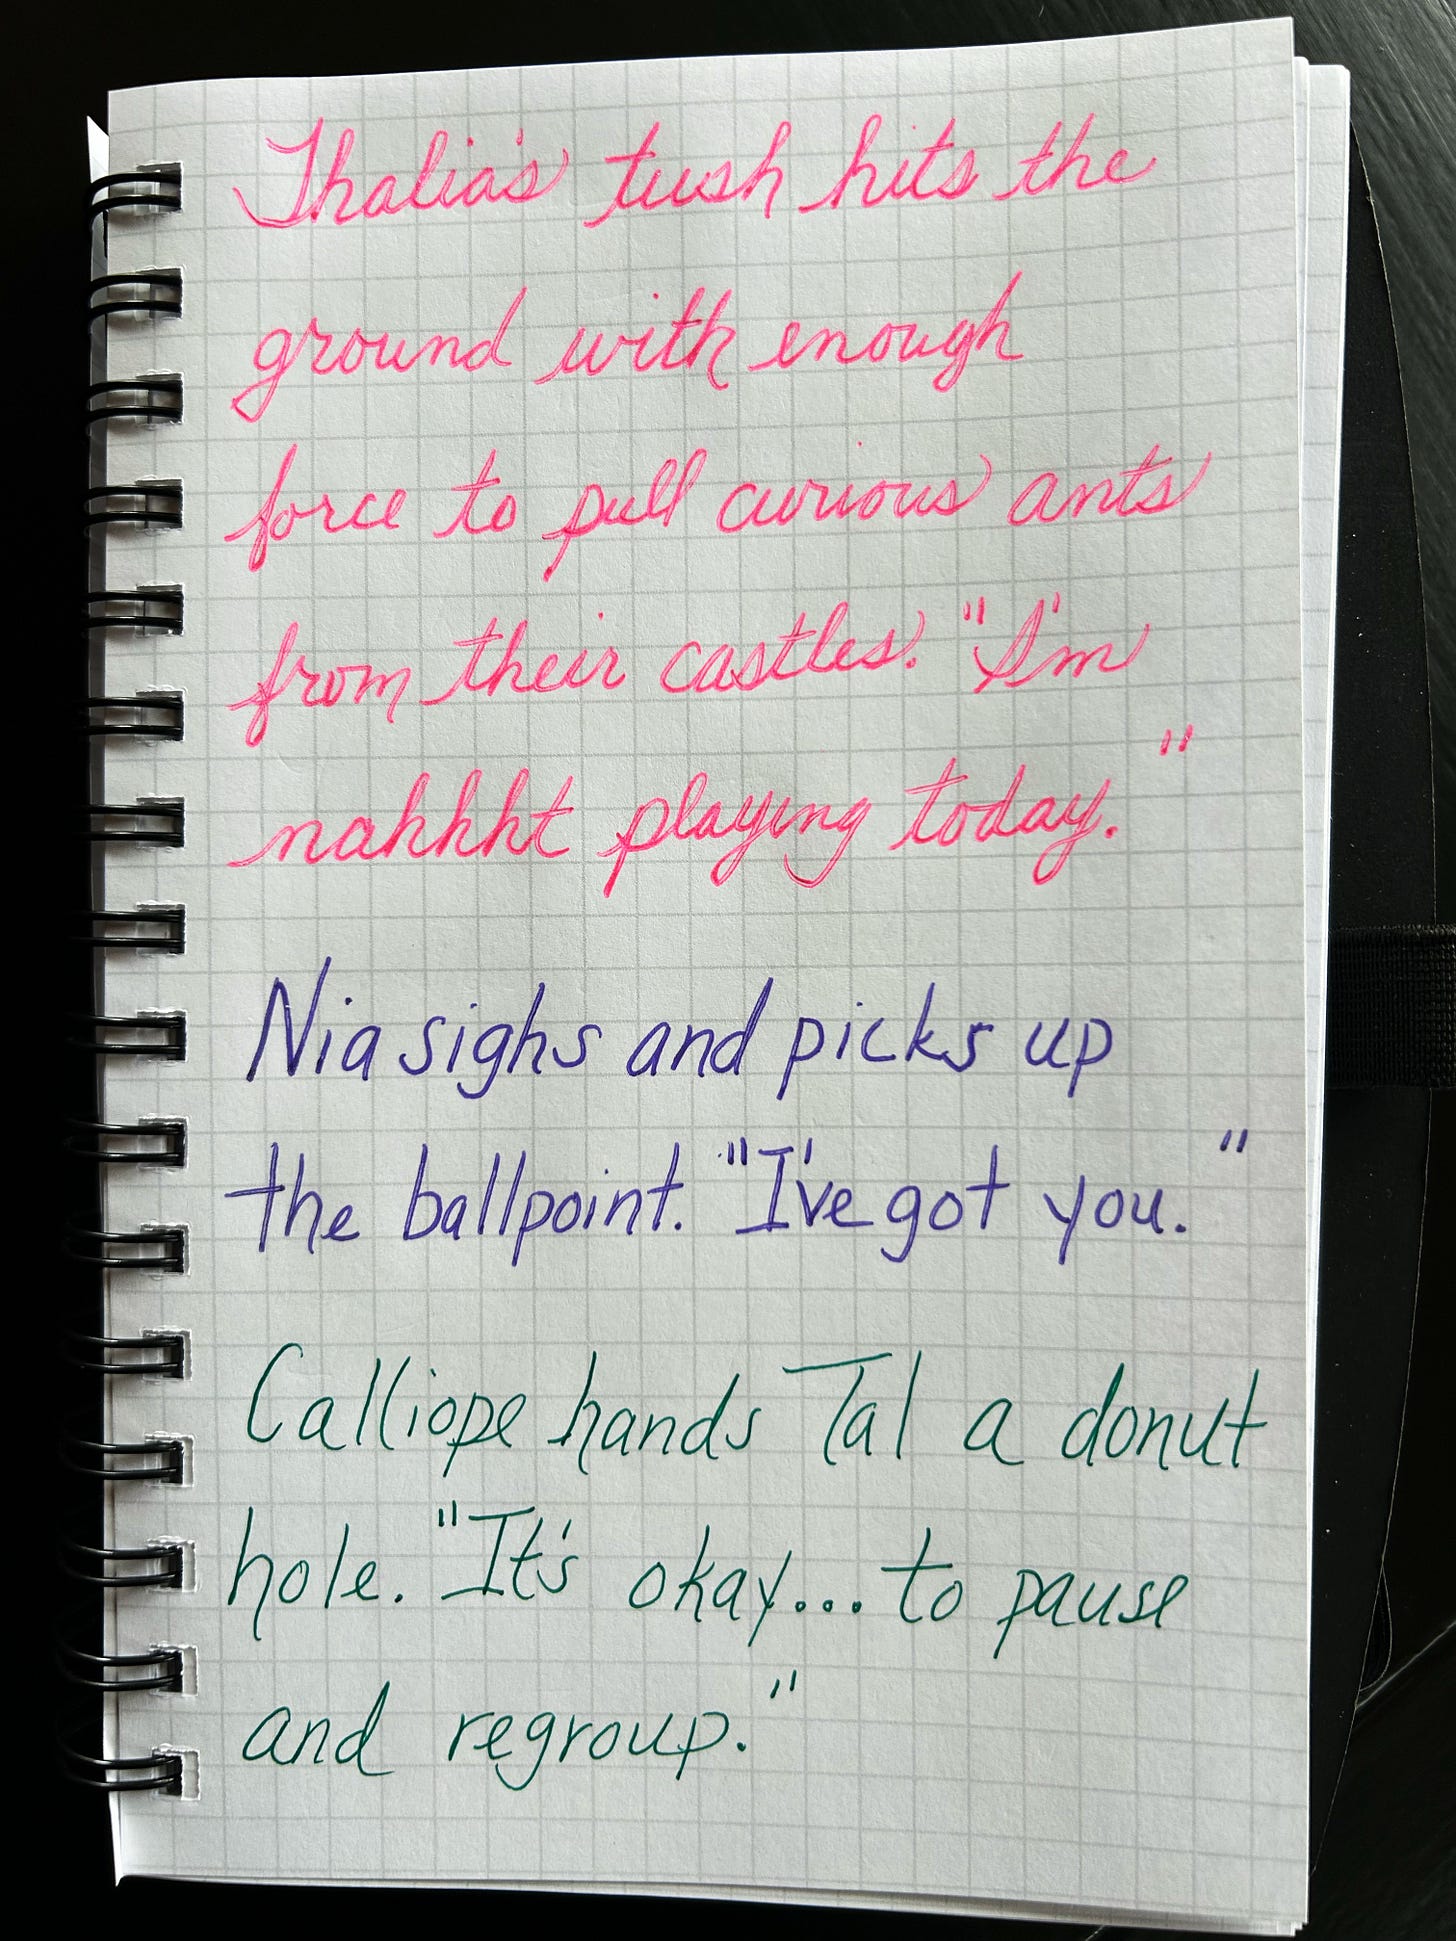 Thalia's tush hits the
ground with enough
force to pull curious ants
from their castles. "I'm
nahhht playing today."
Nia sighs and picks up
the ballpoint. "I've got you."
Calliope hands Tal a donut
hole. "It's okay... to pause
and regroup."